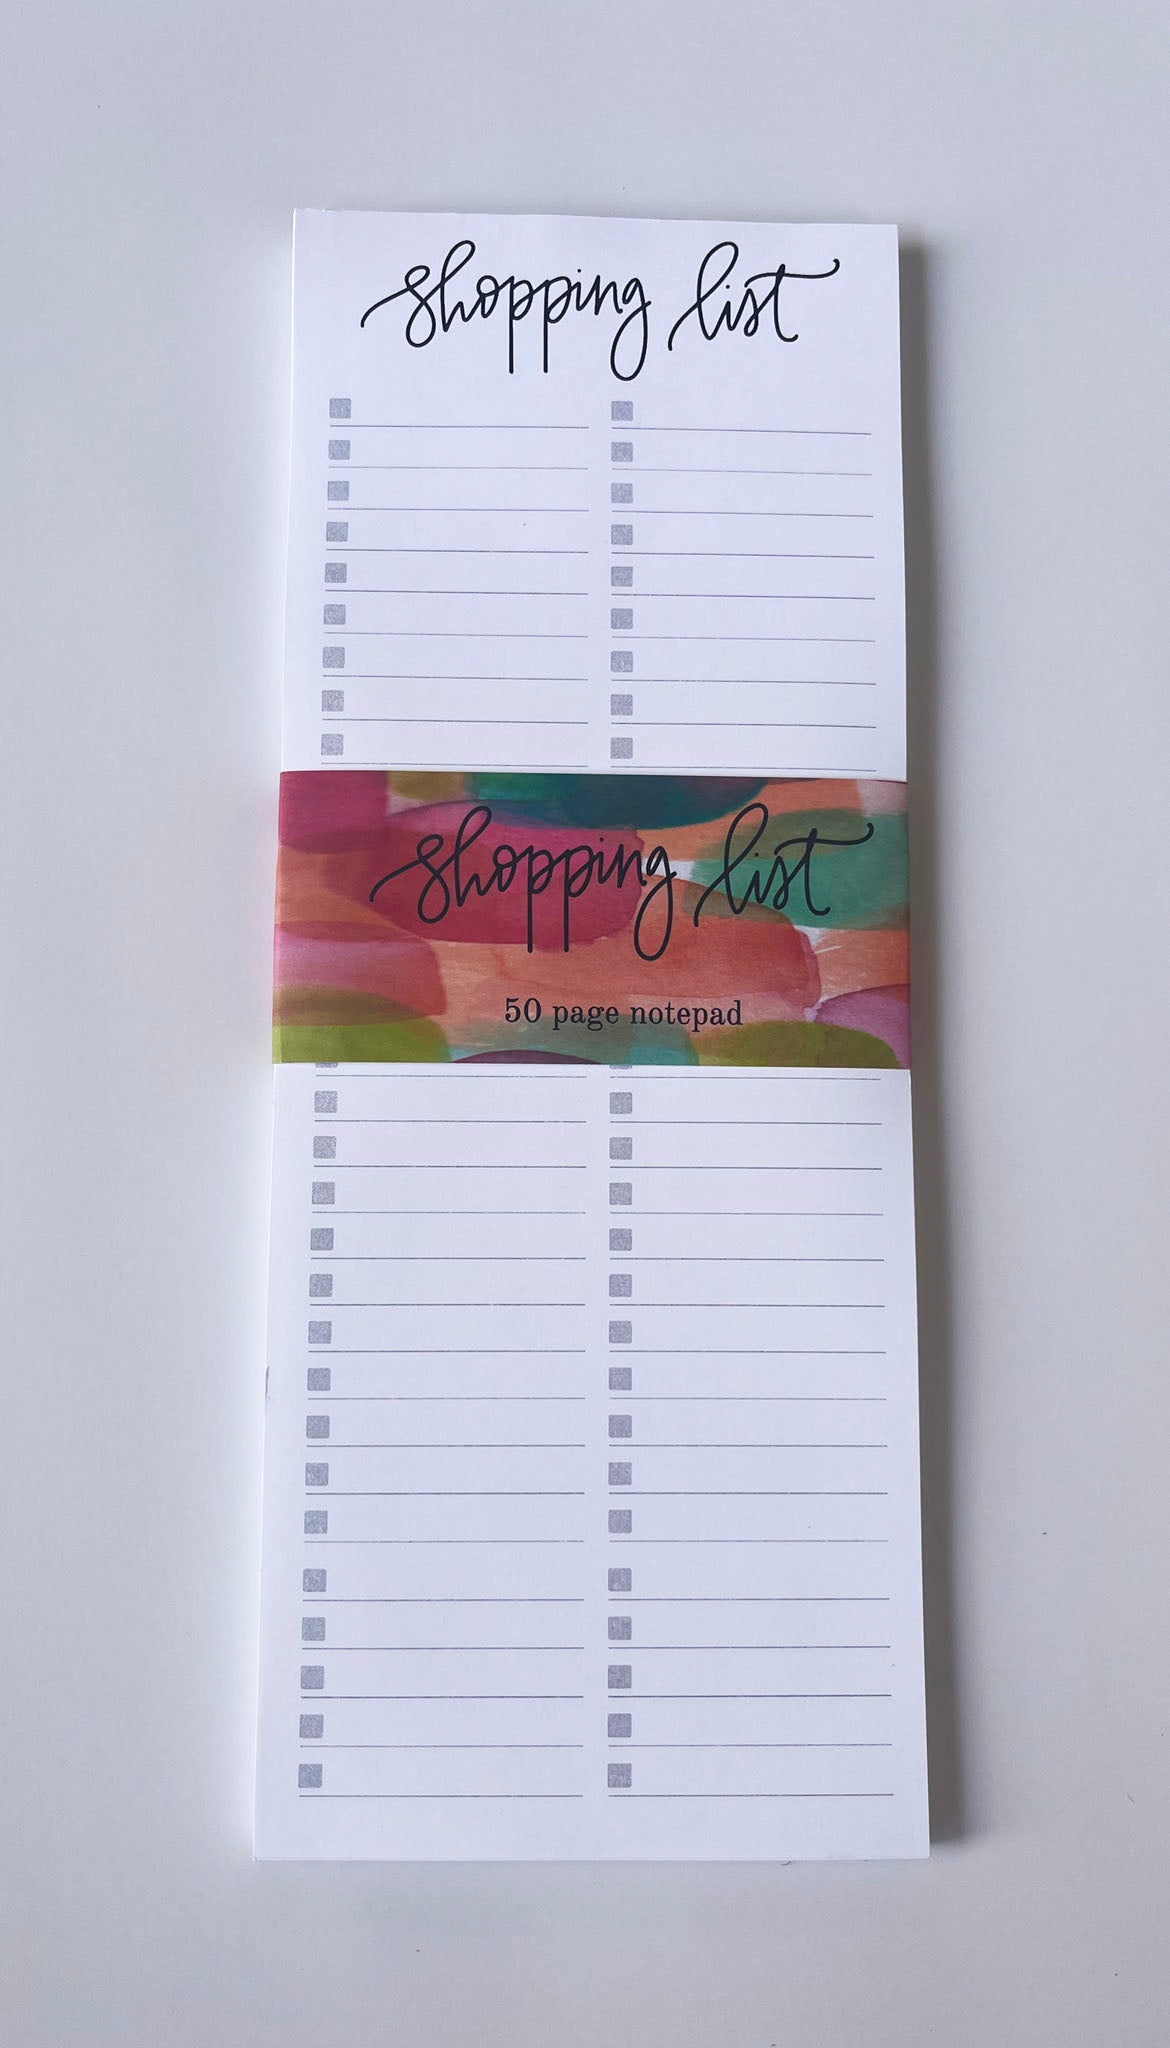 shopping list
shopping list
50 page notepad